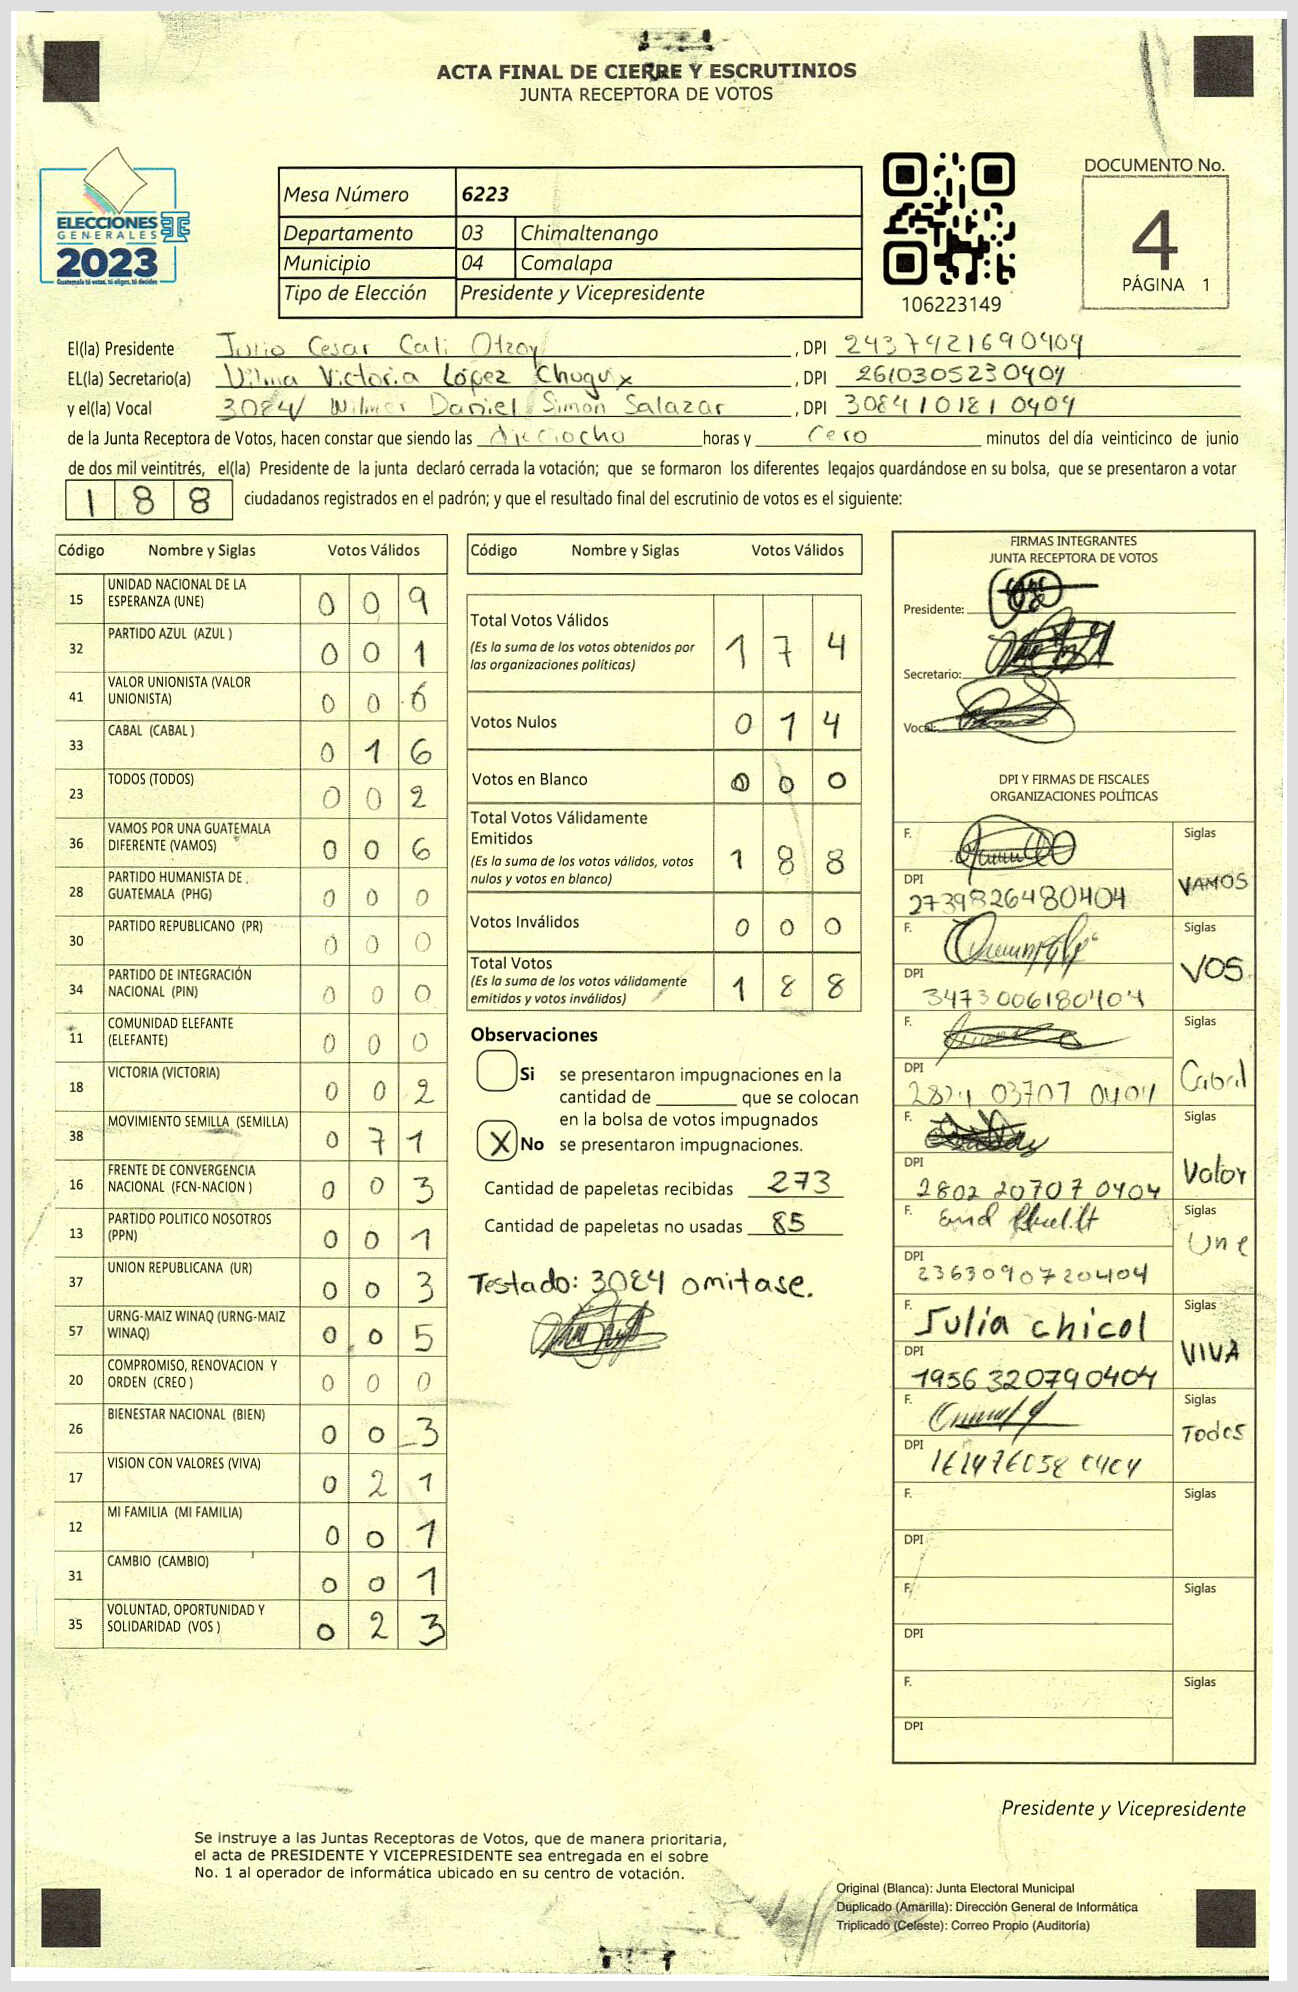 ACTA FINAL DE CIERRE Y ESCRUTINIOS
JUNTA RECEPTORA DE VOTOS
ELECCIONES
GENERALES
2023
Guatemala tú votas, tú eliges, tú decides
Mesa Número 6223
Departamento 03 Chimaltenango
Municipio 04 Comalapa
Tipo de Elección Presidente y Vicepresidente
106223149
DOCUMENTO No.
4
PÁGINA 1
El(la) Presidente Julio Cesar Cali Otzoy, DPI 2437421690404
EL(la) Secretario(a) Vilma Victoria López Chuquix, DPI 2610305230404
y el(la) Vocal 3084/ Wilmer Daniel Simón Salazar, DPI 3084101810404
de la Junta Receptora de Votos, hacen constar que siendo las dieciocho horas y cero minutos del día veinticinco de junio
de dos mil veintitrés, el(la) Presidente de la junta declaró cerrada la votación; que se formaron los diferentes legajos guardándose en su bolsa, que se presentaron a votar
188 ciudadanos registrados en el padrón; y que el resultado final del escrutinio de votos es el siguiente:
Código Nombre y Siglas Votos Válidos
15 UNIDAD NACIONAL DE LA ESPERANZA (UNE) 0 0 9
32 PARTIDO AZUL (AZUL ) 0 0 1
41 VALOR UNIONISTA (VALOR UNIONISTA) 0 0 6
33 CABAL (CABAL ) 0 1 6
23 TODOS (TODOS) 0 0 2
36 VAMOS POR UNA GUATEMALA DIFERENTE (VAMOS) 0 0 6
28 PARTIDO HUMANISTA DE GUATEMALA (PHG) 0 0 0
30 PARTIDO REPUBLICANO (PR) 0 0 0
34 PARTIDO DE INTEGRACIÓN NACIONAL (PIN) 0 0 0
11 COMUNIDAD ELEFANTE (ELEFANTE) 0 0 0
18 VICTORIA (VICTORIA) 0 0 2
38 MOVIMIENTO SEMILLA (SEMILLA) 0 7 1
16 FRENTE DE CONVERGENCIA NACIONAL (FCN-NACION ) 0 0 3
13 PARTIDO POLITICO NOSOTROS (PPN) 0 0 1
37 UNION REPUBLICANA (UR) 0 0 3
57 URNG-MAIZ WINAQ (URNG-MAIZ WINAQ) 0 0 5
20 COMPROMISO, RENOVACION Y ORDEN (CREO ) 0 0 0
26 BIENESTAR NACIONAL (BIEN) 0 0 3
17 VISION CON VALORES (VIVA) 0 2 1
12 MI FAMILIA (MI FAMILIA) 0 0 1
31 CAMBIO (CAMBIO) 0 0 1
35 VOLUNTAD, OPORTUNIDAD Y SOLIDARIDAD (VOS ) 0 2 3
Código Nombre y Siglas Votos Válidos
Total Votos Válidos 1 7 4
(Es la suma de los votos obtenidos por
las organizaciones políticas)
Votos Nulos 0 1 4
Votos en Blanco 0 0 0
Total Votos Válidamente
Emitidos 1 8 8
(Es la suma de los votos válidos, votos
nulos y votos en blanco)
Votos Inválidos 0 0 0
Total Votos 1 8 8
(Es la suma de los votos válidamente
emitidos y votos inválidos)
Observaciones
Si se presentaron impugnaciones en la
cantidad de ________ que se colocan
en la bolsa de votos impugnados
X No se presentaron impugnaciones.
Cantidad de papeletas recibidas 273
Cantidad de papeletas no usadas 85
Testado: 3084 omitase.
FIRMAS INTEGRANTES
JUNTA RECEPTORA DE VOTOS
Presidente:
Secretario:
Vocal:
DPI Y FIRMAS DE FISCALES
ORGANIZACIONES POLÍTICAS
F. Siglas
DPI 2739826480404 VAMOS
F. Siglas
DPI 3473006180404 VOS
F. Siglas
DPI 2821 03707 0404 Cabal
F. Siglas
DPI 2802 20707 0404 Valor
F. Siglas
DPI 2363090720404 Une
F. Julia chicol Siglas
DPI 1956 320790404 VIVA
F. Siglas
DPI 161476058 0404 Todos
F. Siglas
DPI
F. Siglas
DPI
F. Siglas
DPI
Presidente y Vicepresidente
Se instruye a las Juntas Receptoras de Votos, que de manera prioritaria,
el acta de PRESIDENTE Y VICEPRESIDENTE sea entregada en el sobre
No. 1 al operador de informática ubicado en su centro de votación.
Original (Blanca): Junta Electoral Municipal
Duplicado (Amarilla): Dirección General de Informática
Triplicado (Celeste): Correo Propio (Auditoría)